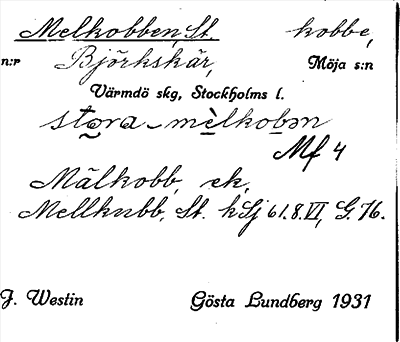 Melkobben, St. kobbe,
n:r Björkskär, Möja s:n
Värmdö skg, Stockholms l.
stora mèlkobən
Mf 4
Mälkobb, ek,
Mellkubb, St. kSj 61.8.VI, G. 76.
J. Westin Gösta Lundberg 1931